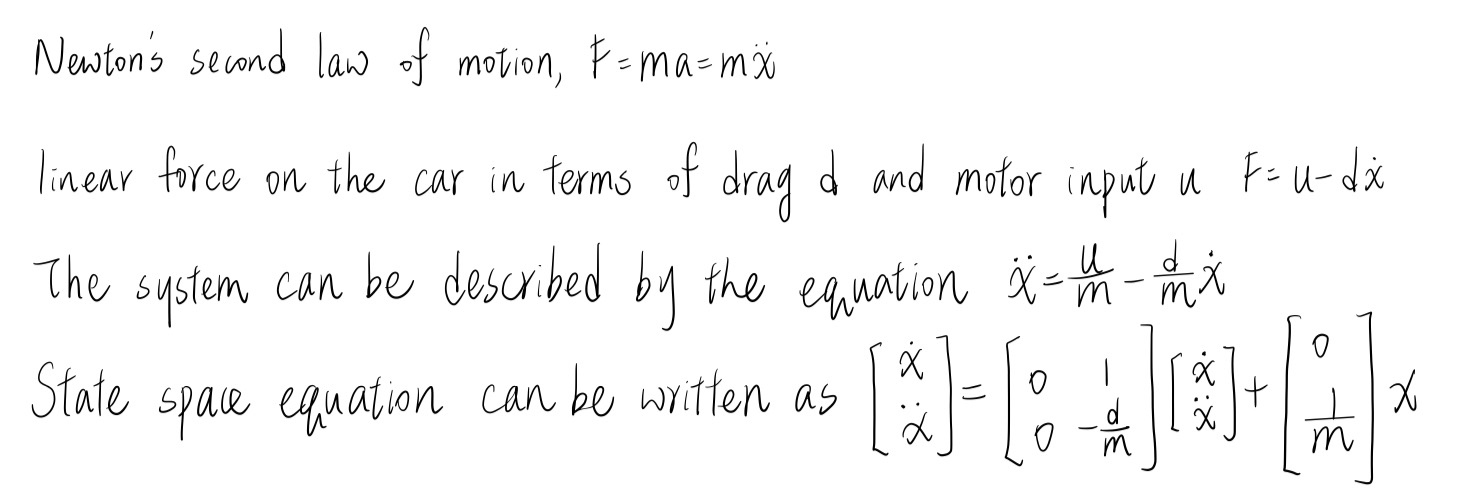 Newton's second law of motion, F=ma=mẍ
linear force on the car in terms of drag d and motor input u F=u-dẋ
The system can be described by the equation ẍ=u/m-d/m ẋ
State space equation can be written as [ẋ; ẍ]=[0 1; 0 -d/m][ẋ; ẍ]+[0; 1/m]x